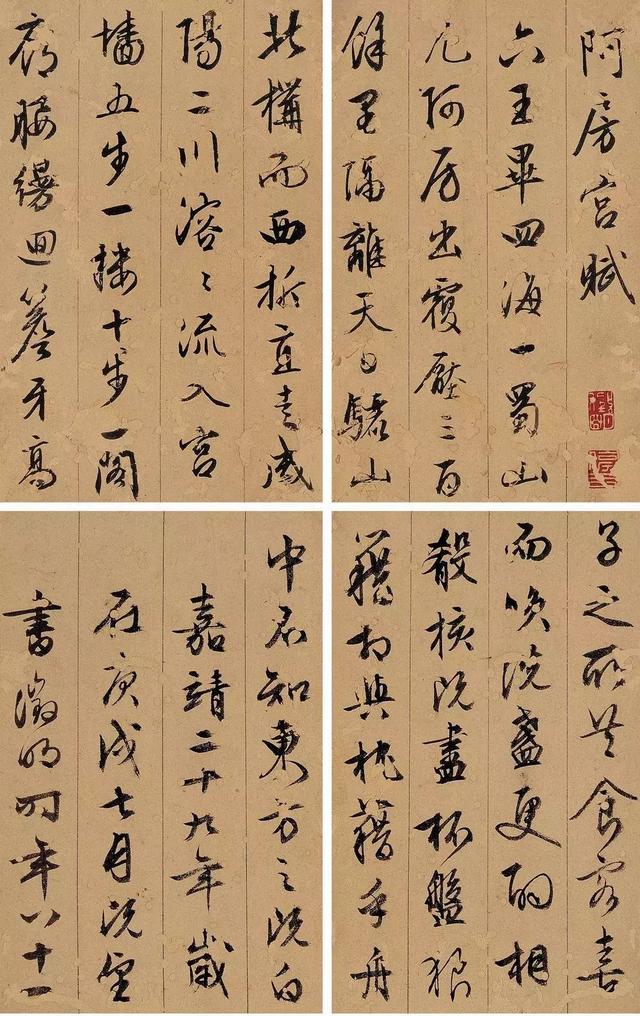 阿房宫賦
六王畢四海一蜀山
兀阿房出覆壓三百
餘里隔離天日驪山
北構而西折直走咸
陽二川溶〻流入宫
墻五步一樓十步一閣
廊腰縵迴簷牙高
子之所共食客喜
而咲洗盞更酌相
殽核既盡杯盤狼
籍相與枕藉乎舟
中不知東方之既白
嘉靖二十九年歲
在庚戌七月既望
書徵明時年八十一